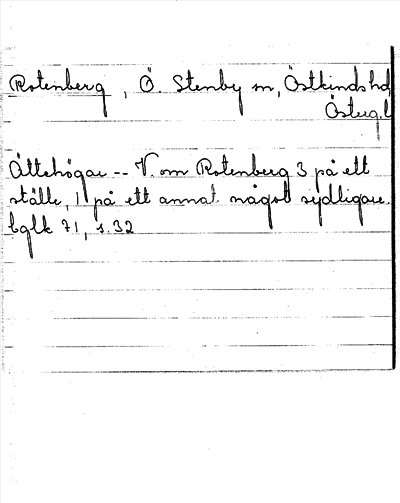 Rotenberg, Ö. Stenby sn, Östkinds hd
Östergl
Ättehögar -- V. om Rotenberg 3 på ett
ställe, 1 på ett annat något sydligare.
bglk 71, s. 32